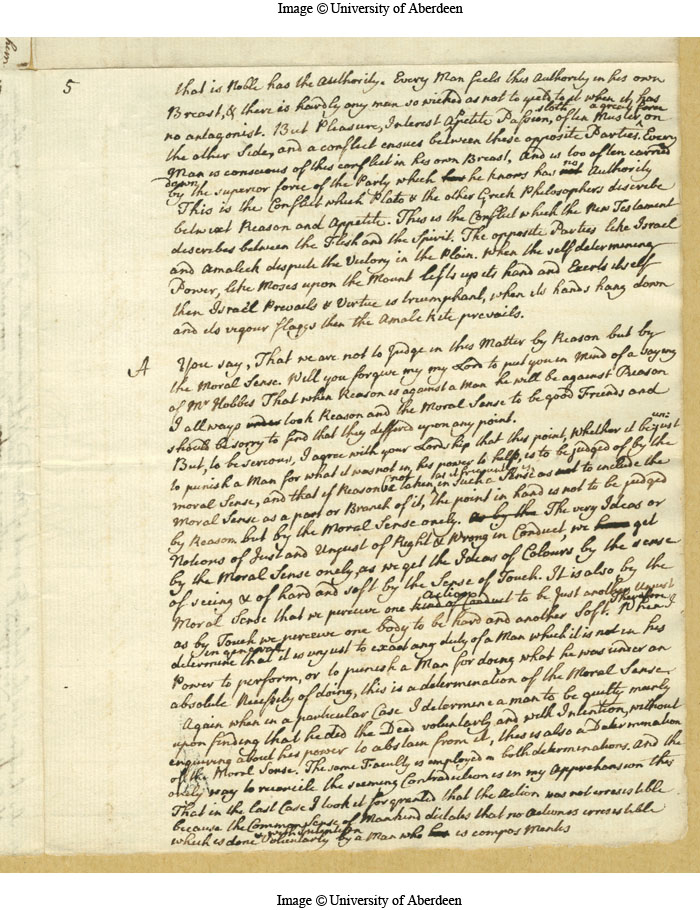 Image © University of Aberdeen
5
that is Noble has the Authority. Every Man feels this Authority in his own
Breast, & there is hardly any man so wicked as not to yield to it when it has
no antagonist. But Pleasure, Interest Apetite Passion, sloth often Muster a great force on
the other Side, and a conflict ensues between these opposite Parties. Every
Man is conscious of this conflict in his own Breast, And is too often carried
down by the superior force of the Party which he knows has no Authority
This is the Conflict which Plato & the other Greek Philosophers describe
betwixt Reason and Appetite. This is the Conflict which the New Testament
describes between the Flesh and the Spirit. The opposite Parties like Israel
and Amaleck dispute the Victory in the Plain. When the self determining
Power, like Moses upon the Mount lifts up its hand and Exerts itself
then Israel Prevails & Virtue is triumphant, when its hands hang down
and its vigour flaggs then the Amalekite prevails.
A You say, That we are not to Judge in this Matter by Reason but by
the Moral Sense. Will you forgive my my Lord to put you in Mind of a Saying
of Mr Hobbes That when Reason is against a Man he will be against Reason
I all ways look Reason and the Moral Sense to be good Friends and
should be sorry to find that they differed upon any point.
But, to be serious, I agree with your Lordship that this point, Whether it be unjust
to punish a Man for what it was not in his power to help, is to be judged of by the
moral Sense, and that if Reason be taken, as it frequently is, in such a Sense as not to include the
Moral Sense as a part or Branch of it, the point in hand is not to be judged
by Reason but by the Moral Sense onely. as by the The very Ideas or
Notions of Just and Unjust of Right & Wrong in Conduct, we get
by the Moral Sense onely, as we get the Ideas of Colours by the sense
of seeing & of hard and soft by the Sense of Touch. It is also by the
Moral Sense that we perceive one kind of Conduct Action to be Just another Unjust
as by Touch we perceive one body to be hard and another soft. Therefore When I
determine in general that it is unjust to exact any duty of a Man which it is not in his
Power to perform, or to punish a Man for doing what he was under an
absolute Necessity of doing, this is a determination of the Moral Sense
Again when in a particular Case I determine a man to be guilty meerly
upon finding that he did the Deed voluntarly and with Intention, without
enquiring about his power to abstain from it, this is also a Determination
of the Moral Sense. The same Faculty is employed in both determinations. And the
onely way to reconcile the seeming Contradiction is in my Apprehension this
That in the last Case I took it for granted that the Action was not irresistible
because the Common Sense of Mankind dictates that no Action is irresistible
which is done voluntarly & with intention by a Man who is compos Mentis
Image © University of Aberdeen